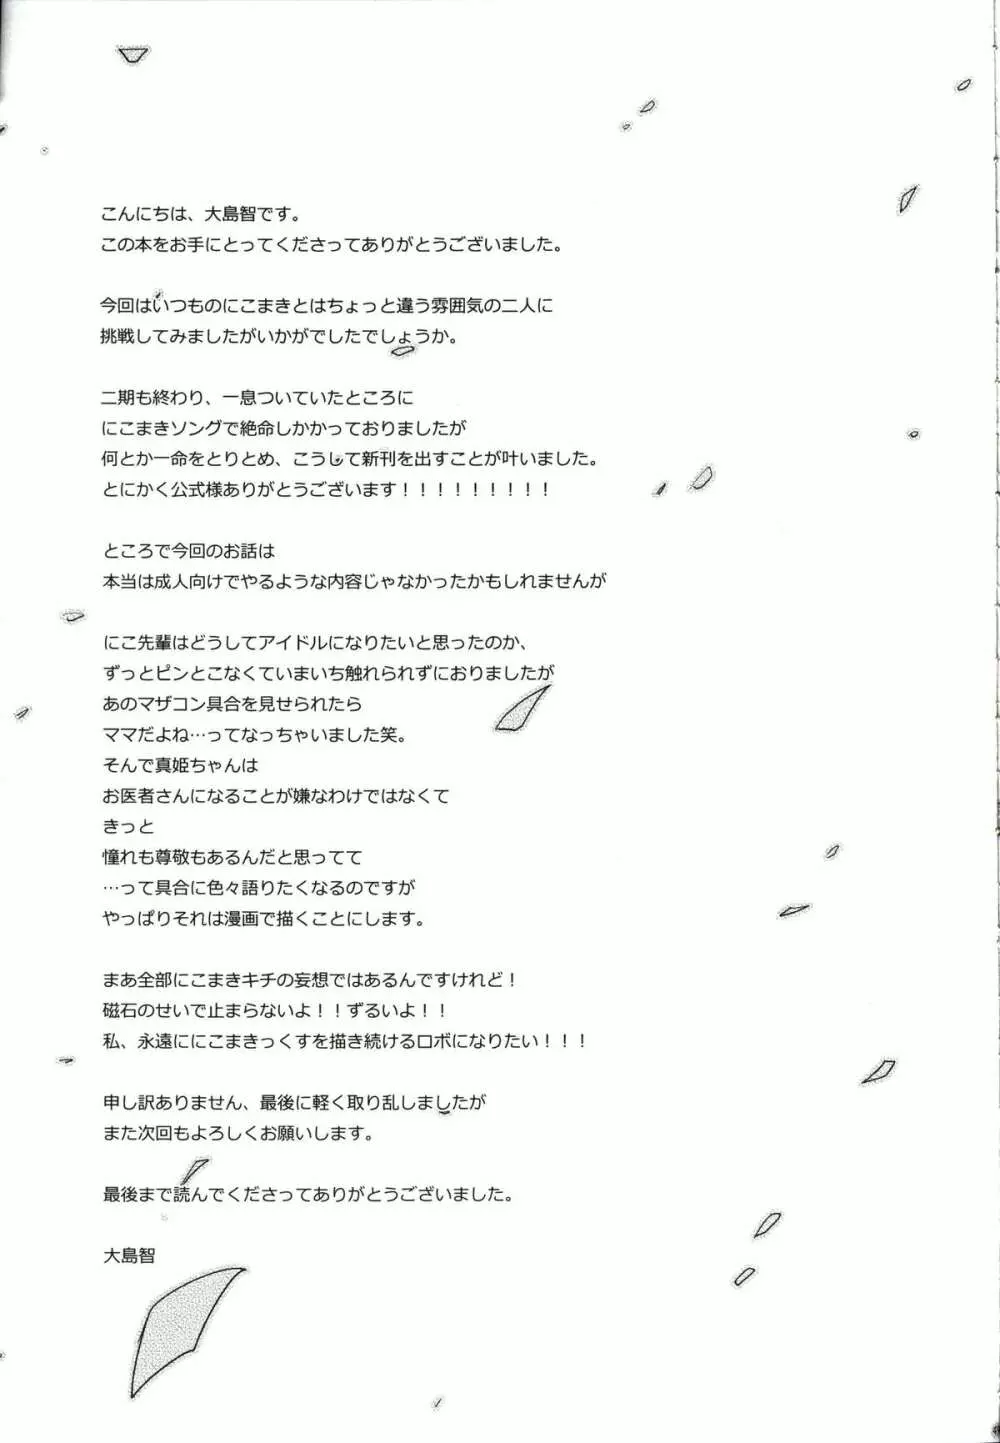 こんにちは、大島智です。
この本をお手にとってくださってありがとうございました。
今回はいつものにこまきとはちょっと違う雰囲気の二人に
挑戦してみましたがいかがでしたでしょうか。
二期も終わり、一息ついていたところに
にこまきソングで絶命しかかっておりましたが
何とか一命をとりとめ、こうして新刊を出すことが叶いました。
とにかく公式様ありがとうございます！！！！！！！！！
ところで今回のお話は
本当は成人向けでやるような内容じゃなかったかもしれませんが
にこ先輩はどうしてアイドルになりたいと思ったのか、
ずっとピンとこなくていまいち触れられずにおりましたが
あのマザコン具合を見せられたら
ママだよね…ってなっちゃいました笑。
そんで真姫ちゃんは
お医者さんになることが嫌なわけではなくて
きっと
憧れも尊敬もあるんだと思ってて
…って具合に色々語りたくなるのですが
やっぱりそれは漫画で描くことにします。
まあ全部にこまきキチの妄想ではあるんですけれど！
磁石のせいで止まらないよ！！ずるいよ！！
私、永遠ににこまきっくすを描き続けるロボになりたい！！！
申し訳ありません、最後に軽く取り乱しましたが
また次回もよろしくお願いします。
最後まで読んでくださってありがとうございました。
大島智